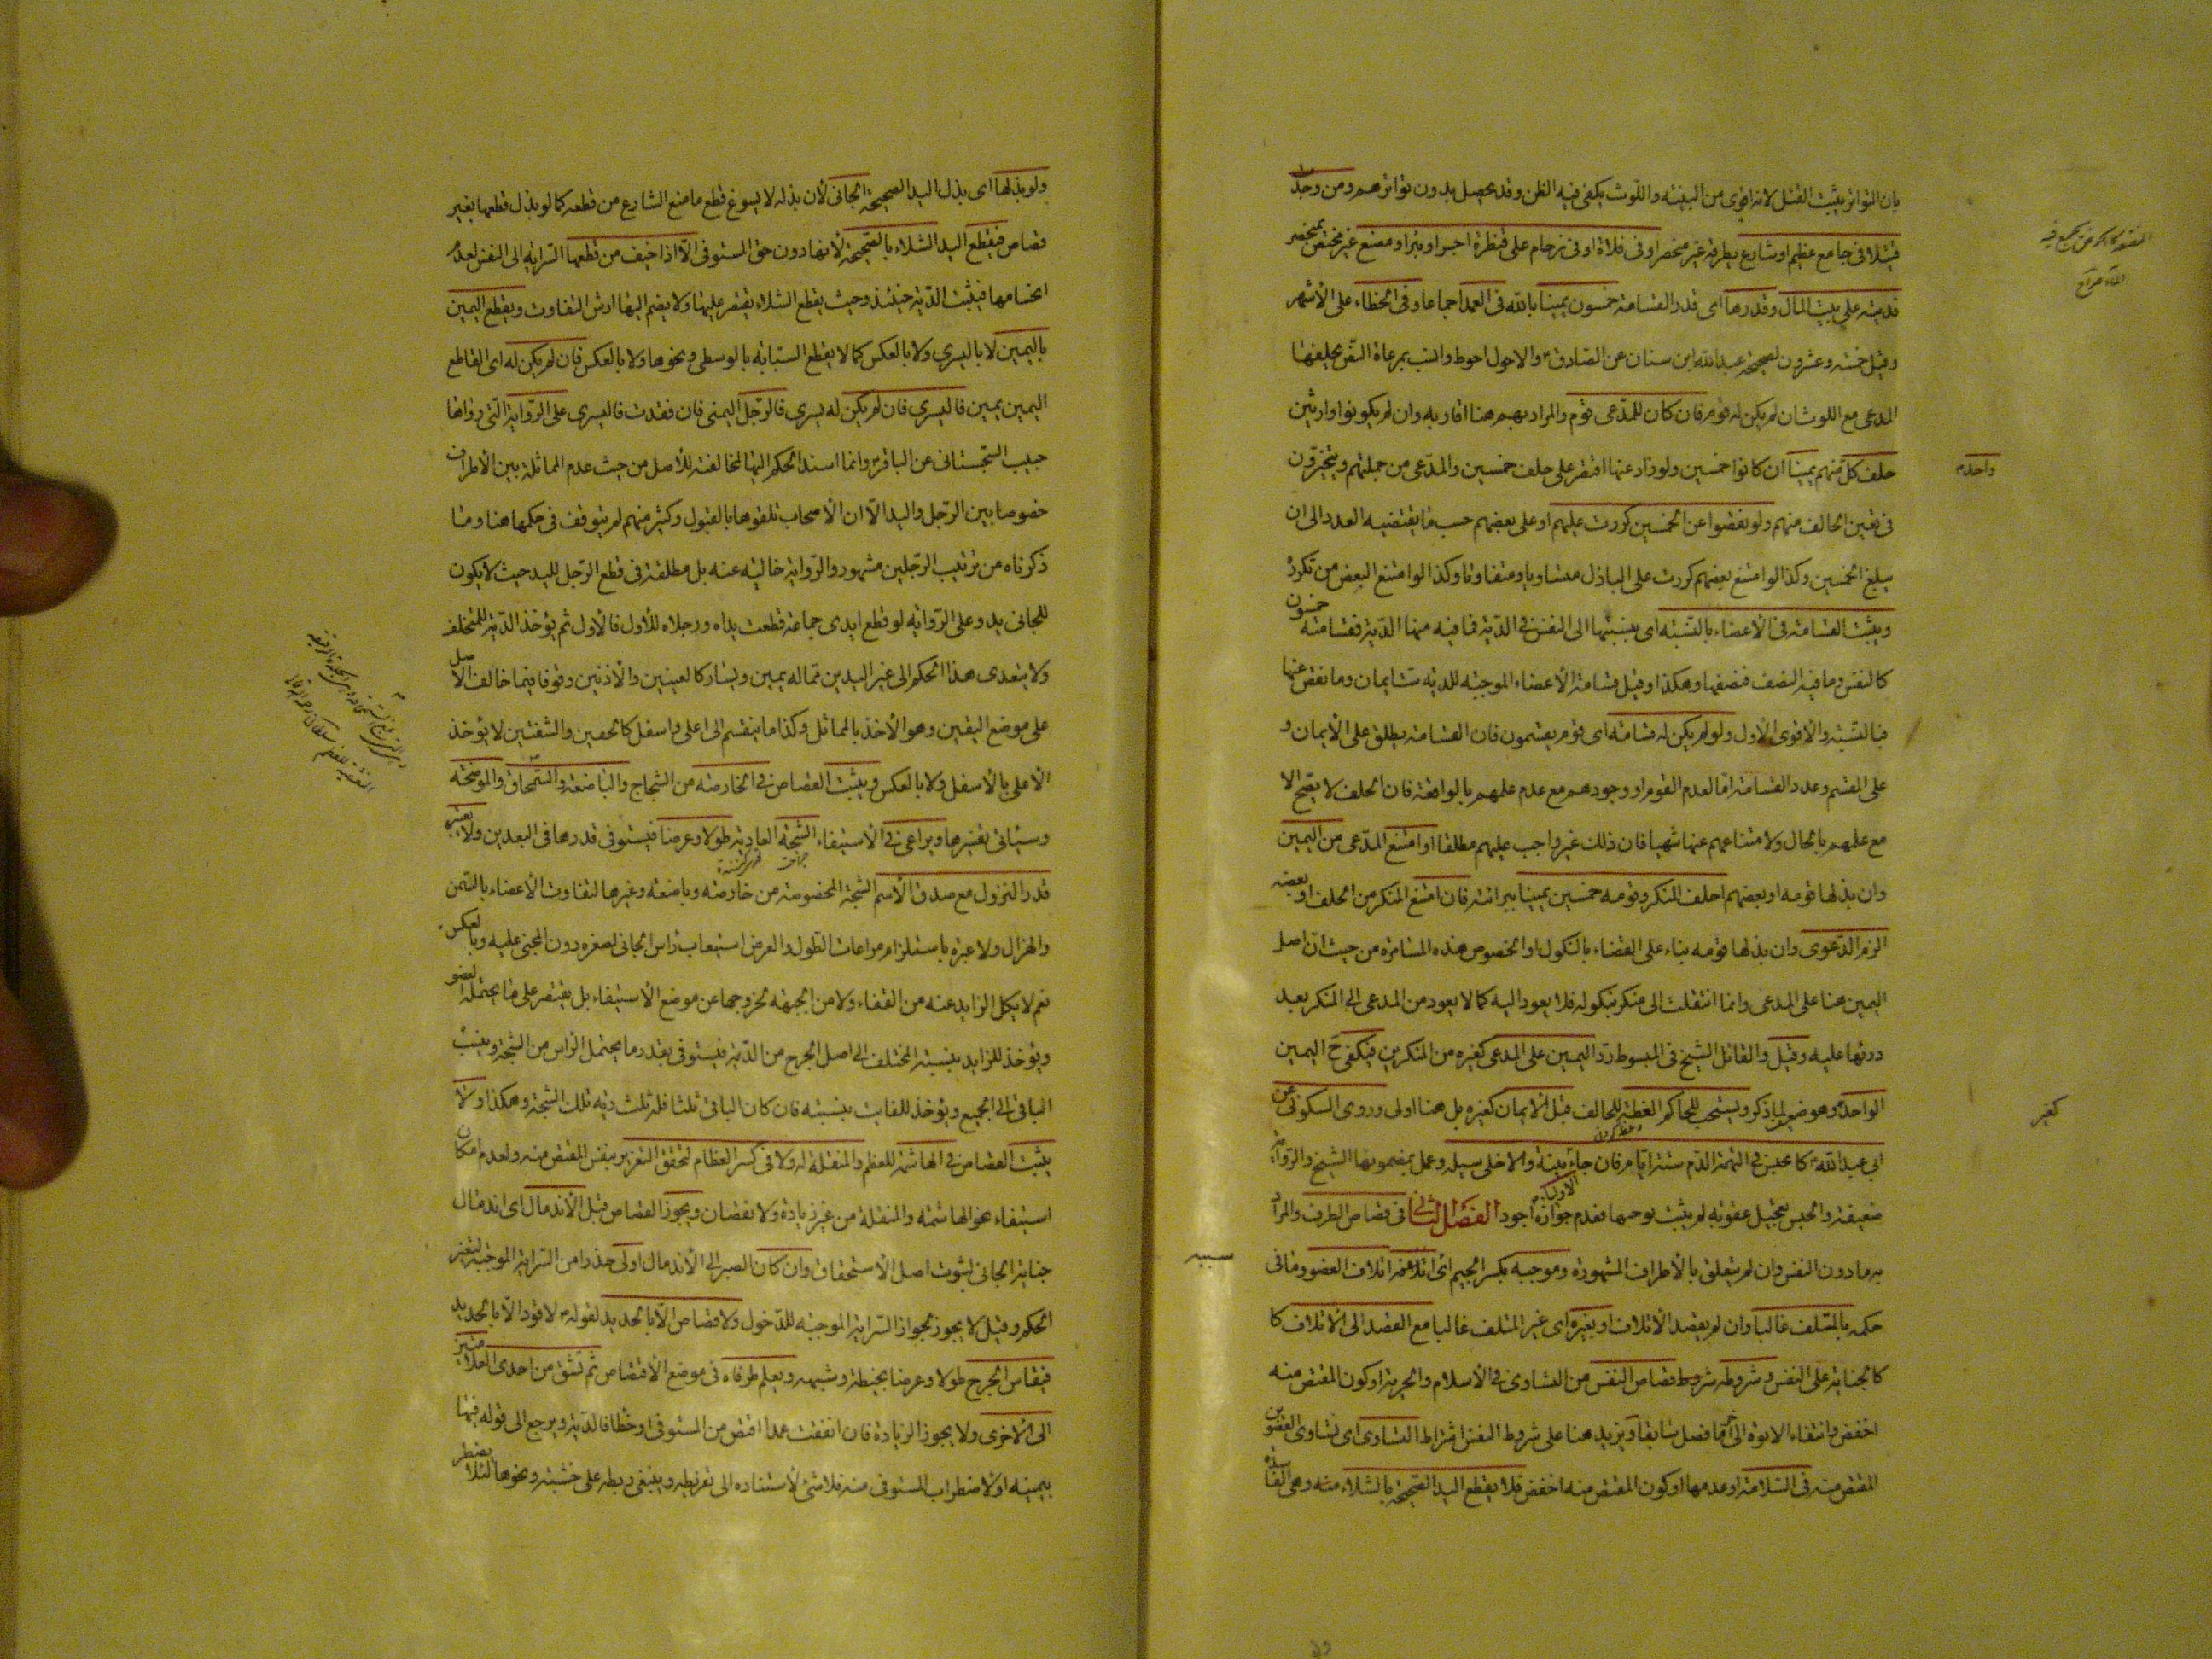 بان التواتر يثبت القتل لانه اقوى من البينة واللوث يكفى فيه الظن وقد يحصل بدون تواترهم ومن وجد
قتيلا فى جامع عظيم او شارع يطرقه غير منحصر او فى فلاة او فى زحام على قنطرة او جسر او بئر او مصنع غير مختص بمنحصر
فديته على بيت المال وقدرها اى قدر القسامة خمسون يمينا بالله فى العمد اجماعا وفى الخطاء على الأشهر
وقيل خمسة وعشرون لصحيحة عبدالله ابن سنان عن الصادق والاول احوط وانسب بمرعاة النفس يحلفها
المدعى مع اللوث ان لم يكن له قوم فان كان للمدّعى قوم والمراد بهم هنا اقاربه وان لم يكونوا وارثين
حلف كلّ منهم يمينا ان كانوا خمسين ولو زاد عنها اقتصر على حلف خمسين والمدّعى من جملتهم ويتخيّرون
واحد
فى تعيين الحالف منهم ولو نقصوا عن الخمسين كررت عليهم او على بعضهم حسب ما يقتضيه العدد الى ان
يبلغ الخمسين وكذا لو امتنع بعضهم كررت على الباذل متساويا ومتفاوتا وكذا لو امتنع البعض من تكرر
ويثبت القسامة فى الأعضاء بالنسبة اى بنسبتها الى النفس فى الدّية فما فيه منها الدّية فقسامته خمسون
كالنفس وما فيه النصف فنصفها وهكذا وقيل قسامة الأعضاء الموجبة للدية ستة ايمان وما نقص عنها
فبالنسبة والأقوى الأول ولو لم يكن له قسامة اى قوم يقسمون فان القسامة يطلق على الأيمان و
على المقسم وعدد القسامة امّا لعدم القوم او وجودهم مع عدم علمهم بالواقعة فان الحلف لا يصح الا
مع علمهم بالحال ولامتناعهم عنها تشهيا فان ذلك غير واجب عليهم مطلقا او امتنع المدّعى من اليمين
وان بذلها قومه او بعضهم احلف المنكر وقومه خمسين يمينا ببرائته فان امتنع المنكر من الحلف او بعضه
الزم الدّعوى وان بذلها قومه بناء على القضاء بالنكول او الخصوص هذه المسامرة من حيث انّ اصل
اليمين هنا على المدعى وانما انتقلت الى منكر بنكوله فلا يعود اليه كما لا يعود من المدعى الى المنكر بعد
ردّها عليه وقيل والقائل الشيخ فى المبسوط ردّ اليمين على المدعى كغيره من المنكرين فيكفى ح اليمين
الواحدة وهو ضعيف لما ذكر ويستحب للحاكم العظة للحالف قبل الأيمان كغيره بل هنا اولى وروى السكونى عن
كغير
ابى عبدالله كان يحبس فى التهمة الدّم ستة ايّام فان جاء الاولياء ببينة والا خلى سبيله وعمل بمضمونها الشيخ والرّواية
ضعيفة والحبس تعجيل عقوبة لم يثبت موجبها فعدم جوازه اجود الفصل الثانى فى قصاص الطرف والمراد
به ما دون النفس وان لم يتعلق بالأطراف المشهورة وموجبه بكسر الجيم اى اتلاف العضو وما فى
حكمه بالمتلف غالبا وان لم يقصد الأتلاف او بغيره اى غير المتلف غالبا مع القصد الى الأتلاف كا
كالجناية على النفس وشروطه شروط قصاص النفس من التساوى فى الأسلام والحرية او كون المقتص منه
اخفض وانتفاء الابوة الى آخر ما فصل سابقا ويزيد هنا على شروط النفس اشتراط التساوى اى تساوى العضوين
المقتص منه فى السّلامة او عدمها او كون المقتص منه اخفض فلا يقطع اليد الصّحيحة بالشلاء منه وهى الفاسدة
ولو بذلها اى بذل اليد الصحيحة الجانى لأن بذله لا يسوغ قطع ما منع الشارع من قطعه كما لو بذل قطعها بغير
قصاص فيقطع اليد الشلاء بالصّحيحة لأنها دون حق المستوفى الّا اذا خيف من قطعها السّراية الى النفس لعدم
انحسامها فيثبت الدّية حينئذ وحيث يقطع الشلاء يقتصر عليها ولا يضم اليها ارش التفاوت ويقطع اليمين
باليمين لا باليسرى ولا بالعكس كما لا يقطع السّبابة بالوسطى ونحوها ولا بالعكس فان لم يكن له اى القاطع
اليمين يمين فاليسرى فان لم يكن له يسرى فالرّجل اليمنى فان فقدت فاليسرى على الرّواية الّتى رواها
حبيب السّجستانى عن الباقر وانما اسند الحكم اليها لمخالفته للأصل من حيث عدم المماثلة بين الأطراف
خصوصا بين الرّجل واليد الّا ان الأصحاب تلقوها بالقبول وكثير منهم لم يتوقف فى حكمها هنا وما
ذكرناه من ترتيب الرّجلين مشهور والرّواية خالية عنه بل مطلقة فى قطع الرّجل لليد حيث لا يكون
للجانى يد وعلى الرّواية لو قطع ايدى جماعة قطعت يداه ورجلاه للأول فالأول ثم يؤخذ الدّية للمتخلف
ولا يتعدى هذا الحكم الى غير اليدين مما له يمين ويسار كالعينين والأذنين وقوفا فيما خالف الأصل
على موضع اليقين وهو الأخذ بالمماثل وكذا ما ينقسم الى اعلى واسفل كالجفنين والشفتين لا يؤخذ
الأعلى بالأسفل ولا بالعكس ويثبت القصاص فى الخارصة من الشجاج والباضعة والسّمحاق والموضحة
وسيأتى تفسيرها ويراعى فى الأستيفاء الشجّة العادية طولا وعرضا فيستوفى قدرها فى البعدين ولا يعتبر
قدر النزول مع صدق الأسم الشجة المخصوصة من خارصة وباضعة وغيرها لتفاوت الأعضاء بالسّمن
والهزال ولا عبرة باستلزام مراعات الطول والعرض استيعاب رأس الجانى لصغره دون المجنى عليه وبالعكس
نعم لا يكمل الزايد عنه من القفاء ولا من الجبهة لخروجهما عن موضع الأستيفاء بل يقتصر على ما يحتمله العضو
ويؤخذ للزايد بنسبة المختلف الى اصل الجرح من الدّية فيستوفى بقدر ما يحتمل الرأس من الشجة وينسب
الباقى الى الجميع ويؤخذ للفايت بنسبته فان كان الباقى ثلثا فله ثلث دية تلك الشجة وهكذا ولا
يثبت القصاص فى الهاشمة للعظم والمنقلة له ولا فى كسر العظام لتحقق التغرير بنفس المقتص منه ولعدم امكان
استيفاء نحو الهاشمة والمنقلة من غير زيادة ولا نقصان ويجوز القصاص قبل الأندمال اى اندمال
جناية الجانى لثبوت اصل الأستحقاق وان كان الصبر الى الأندمال اولى حذرا من السّراية الموجبة لتغير
الحكم وقيل لا يجوز لجواز السّراية الموجبة للدّخول ولا قصاص الّا بالحديد لقوله لا قود الّا بالحديد
فيقاس الجرح طولا وعرضا بخيطة وشبهه ويعلم طرفاه فى موضع الأقتصاص ثم تشق من احدى العلامتين
الى الأخرى ولا يجوز الزيادة فان اتفقت عمدا اقتص من المستوفى او خطأ فالدّية ويرجع الى قوله فيها
بيمينه او لأضطراب المستوفى منه فلا شئ لأستناده الى تفريطه وينبغى ربطه على خشبة ونحوها لئلا يضطر